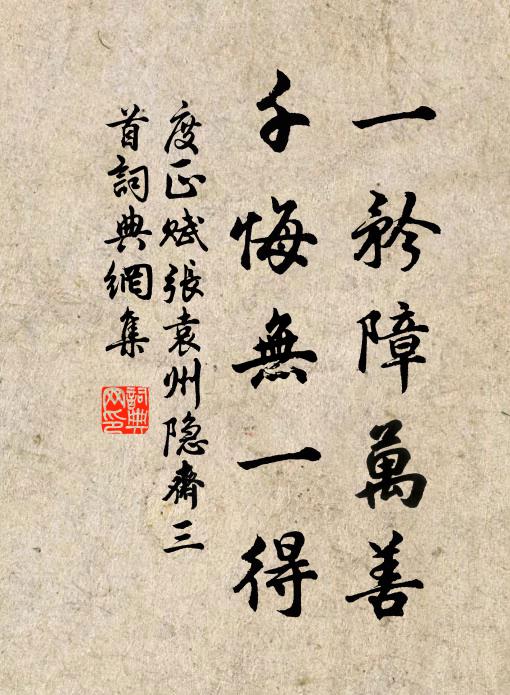 一矜障萬善
千悔無一得
度正賦張袁州隐齋三
首詞典網集
詞典
网印